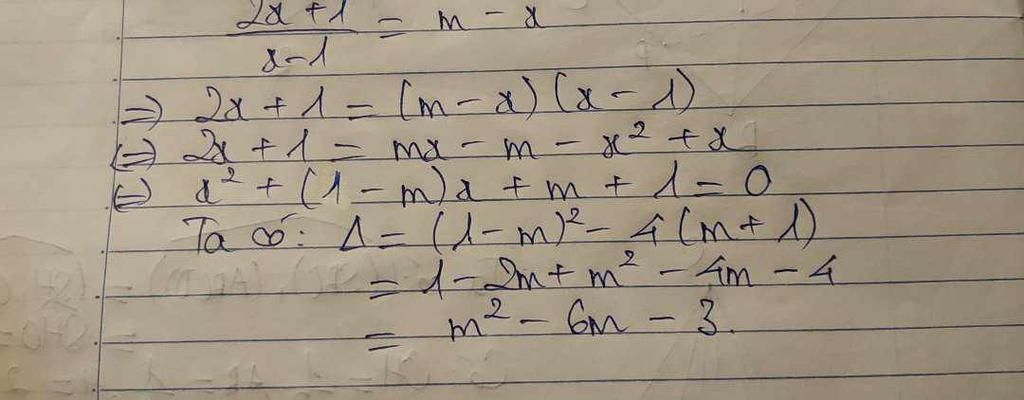 2x + 1 / x - 1 = m - x
=> 2x + 1 = (m - x)(x - 1)
<=> 2x + 1 = mx - m - x² + x
<=> x² + (1 - m)x + m + 1 = 0
Ta có: Δ = (1 - m)² - 4(m + 1)
= 1 - 2m + m² - 4m - 4
= m² - 6m - 3.